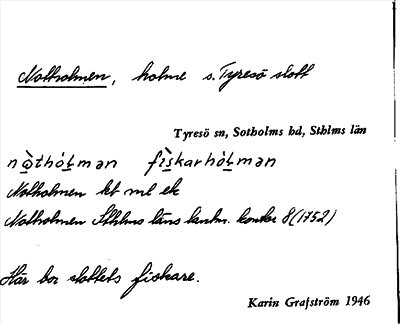 Notholmen, holme s. Tyresö slott
Tyresö sn, Sotholms hd, Sthlms län
nò̤thól̤mən fìs̤karhól̤mən
Notholmen kb ml ek
Notholmen Sthlms läns lantm. kontor 8 (1752)
Här bor slottets fiskare.
Karin Grafström 1946